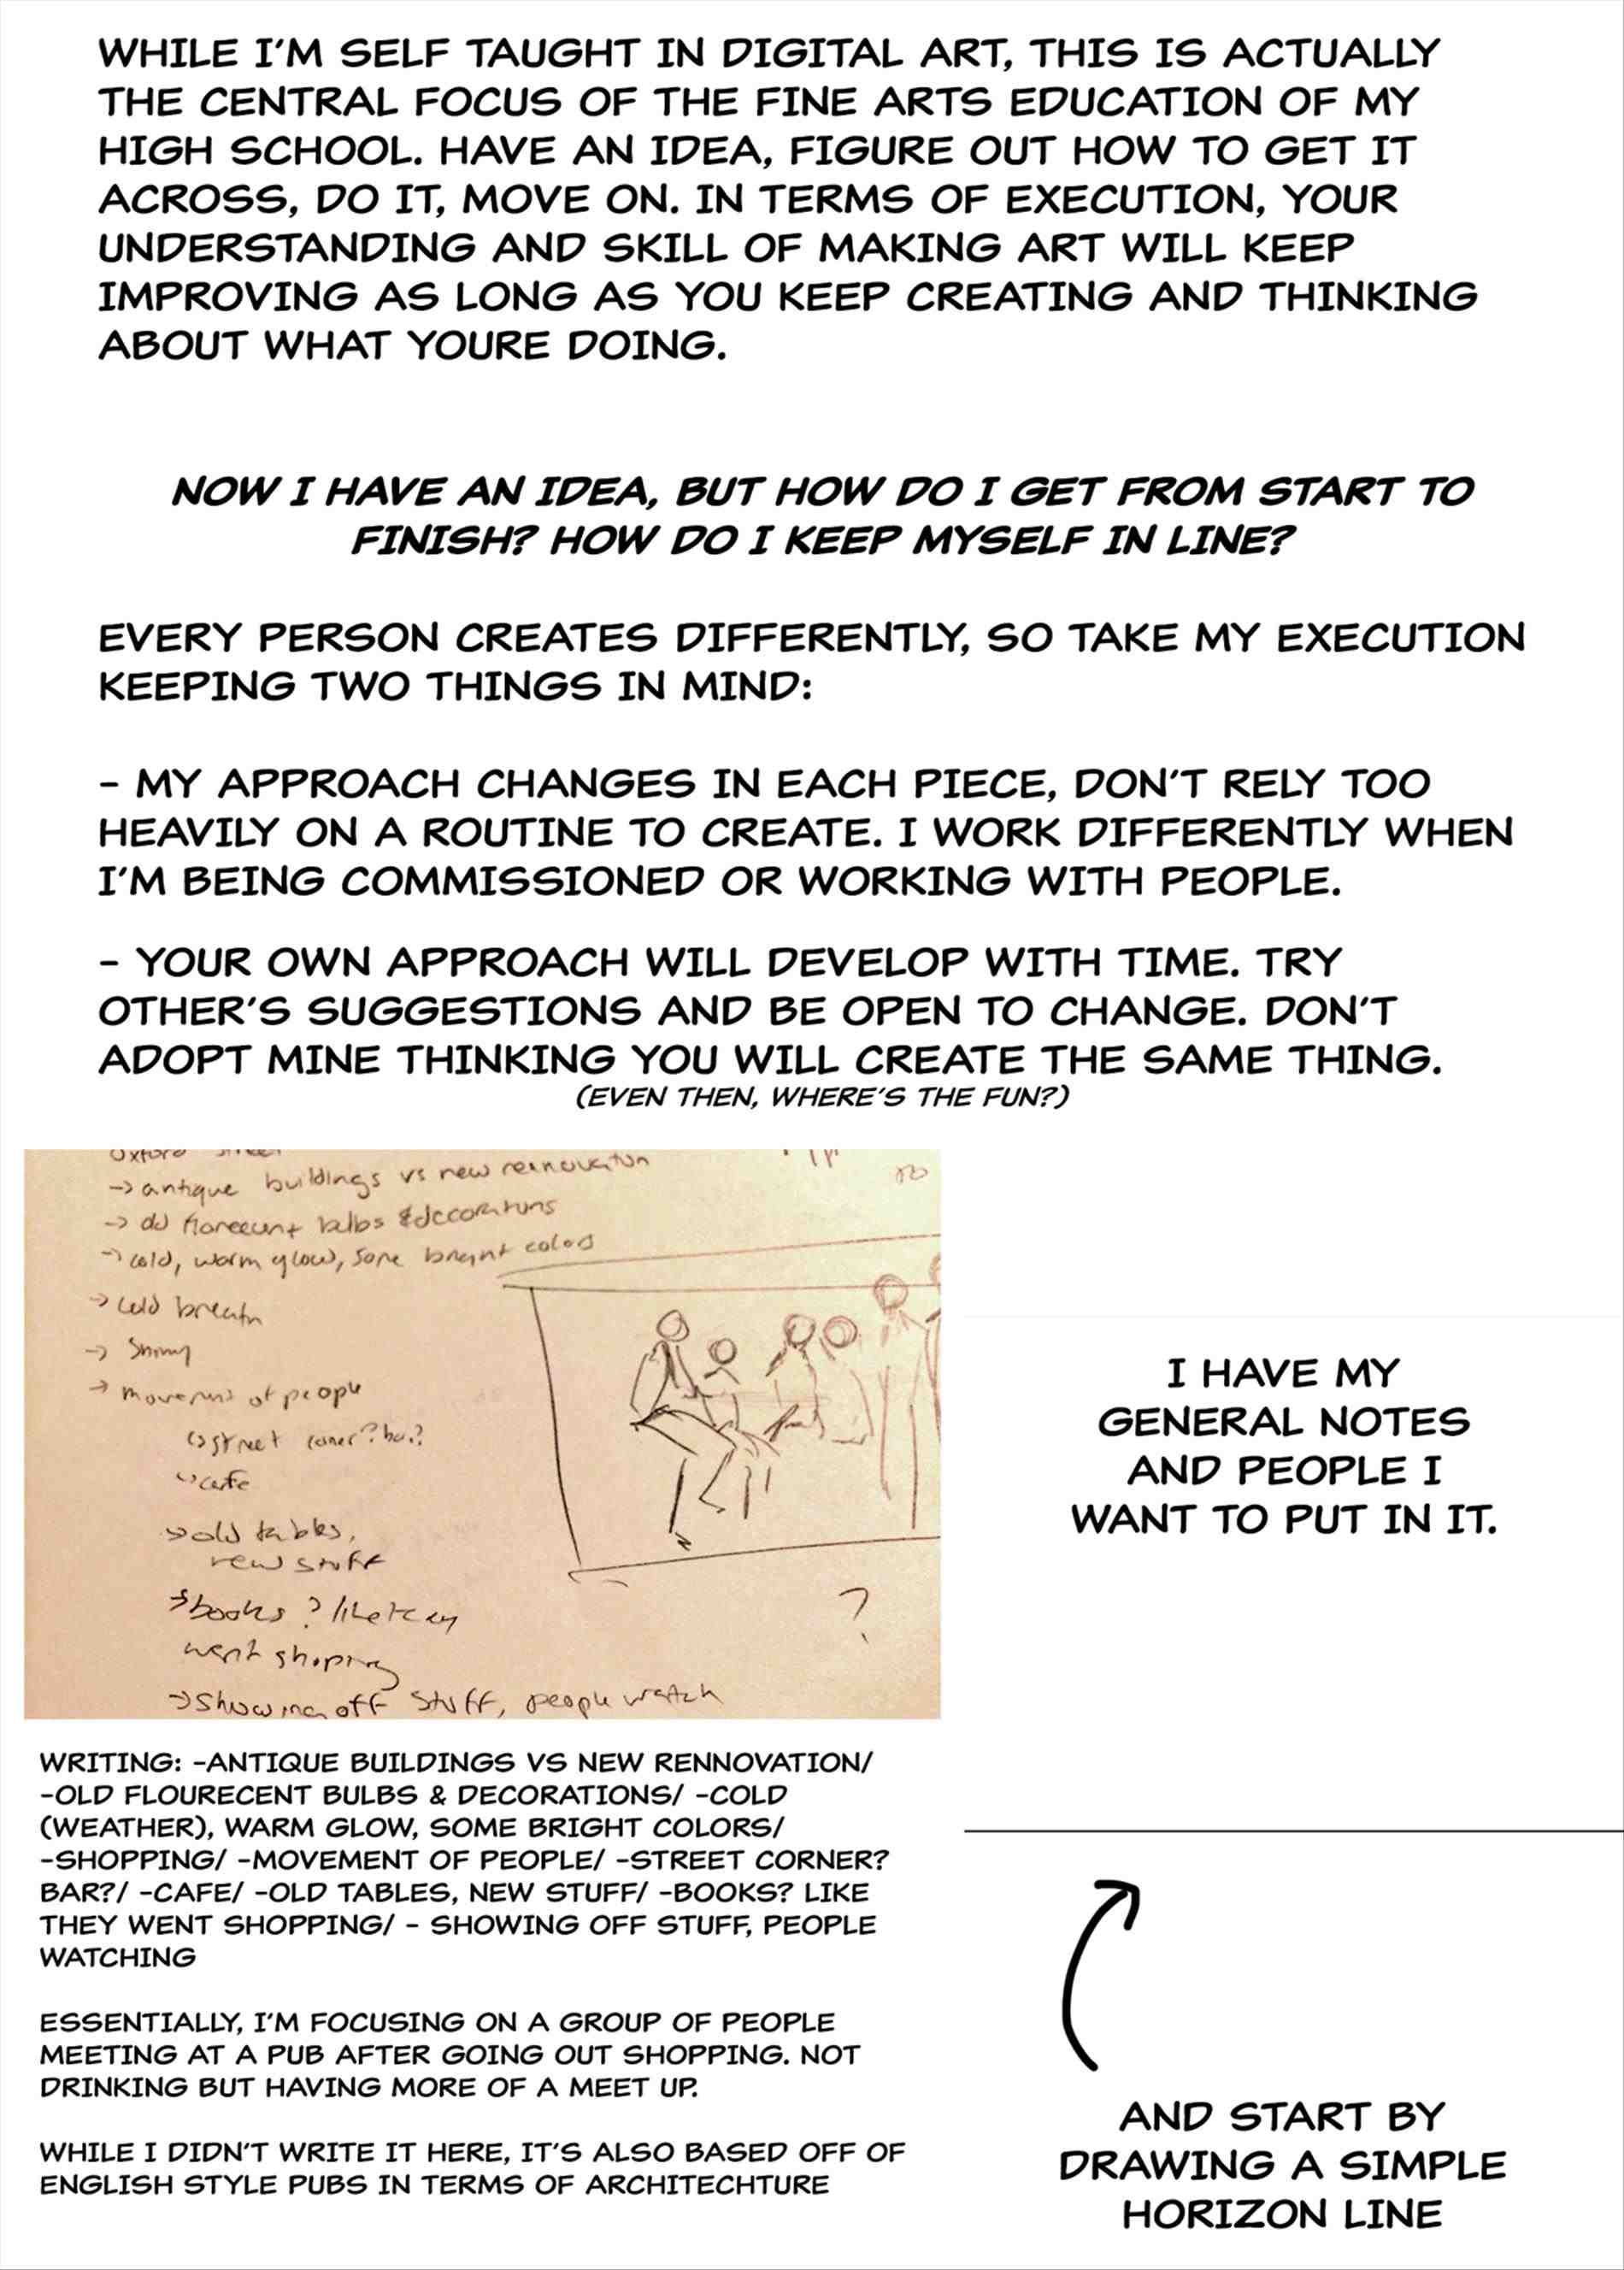 WHILE I'M SELF TAUGHT IN DIGITAL ART, THIS IS ACTUALLY
THE CENTRAL FOCUS OF THE FINE ARTS EDUCATION OF MY
HIGH SCHOOL. HAVE AN IDEA, FIGURE OUT HOW TO GET IT
ACROSS, DO IT, MOVE ON. IN TERMS OF EXECUTION, YOUR
UNDERSTANDING AND SKILL OF MAKING ART WILL KEEP
IMPROVING AS LONG AS YOU KEEP CREATING AND THINKING
ABOUT WHAT YOURE DOING.
NOW I HAVE AN IDEA, BUT HOW DO I GET FROM START TO
FINISH? HOW DO I KEEP MYSELF IN LINE?
EVERY PERSON CREATES DIFFERENTLY, SO TAKE MY EXECUTION
KEEPING TWO THINGS IN MIND:
- MY APPROACH CHANGES IN EACH PIECE, DON'T RELY TOO
HEAVILY ON A ROUTINE TO CREATE. I WORK DIFFERENTLY WHEN
I'M BEING COMMISSIONED OR WORKING WITH PEOPLE.
- YOUR OWN APPROACH WILL DEVELOP WITH TIME. TRY
OTHER'S SUGGESTIONS AND BE OPEN TO CHANGE. DON'T
ADOPT MINE THINKING YOU WILL CREATE THE SAME THING.
(EVEN THEN, WHERE'S THE FUN?)
→ antique buildings vs new
→ bulbs & decorations
→ cold, warm glow, some bright colors
→ cold breath
→ movement of people
↳ street corner? bar?
↳ cafe
→ old tables,
new stuff
→ books? like they
went shoping
→ showing off stuff, people watch
?
I HAVE MY
GENERAL NOTES
AND PEOPLE I
WANT TO PUT IN IT.
WRITING: -ANTIQUE BUILDINGS VS NEW RENNOVATION/
-OLD FLOURECENT BULBS & DECORATIONS/ -COLD
(WEATHER), WARM GLOW, SOME BRIGHT COLORS/
-SHOPPING/ -MOVEMENT OF PEOPLE/ -STREET CORNER?
BAR?/ -CAFE/ -OLD TABLES, NEW STUFF/ -BOOKS? LIKE
THEY WENT SHOPPING/ - SHOWING OFF STUFF, PEOPLE
WATCHING
ESSENTIALLY, I'M FOCUSING ON A GROUP OF PEOPLE
MEETING AT A PUB AFTER GOING OUT SHOPPING. NOT
DRINKING BUT HAVING MORE OF A MEET UP.
WHILE I DIDN'T WRITE IT HERE, IT'S ALSO BASED OFF OF
ENGLISH STYLE PUBS IN TERMS OF ARCHITECHTURE
AND START BY
DRAWING A SIMPLE
HORIZON LINE